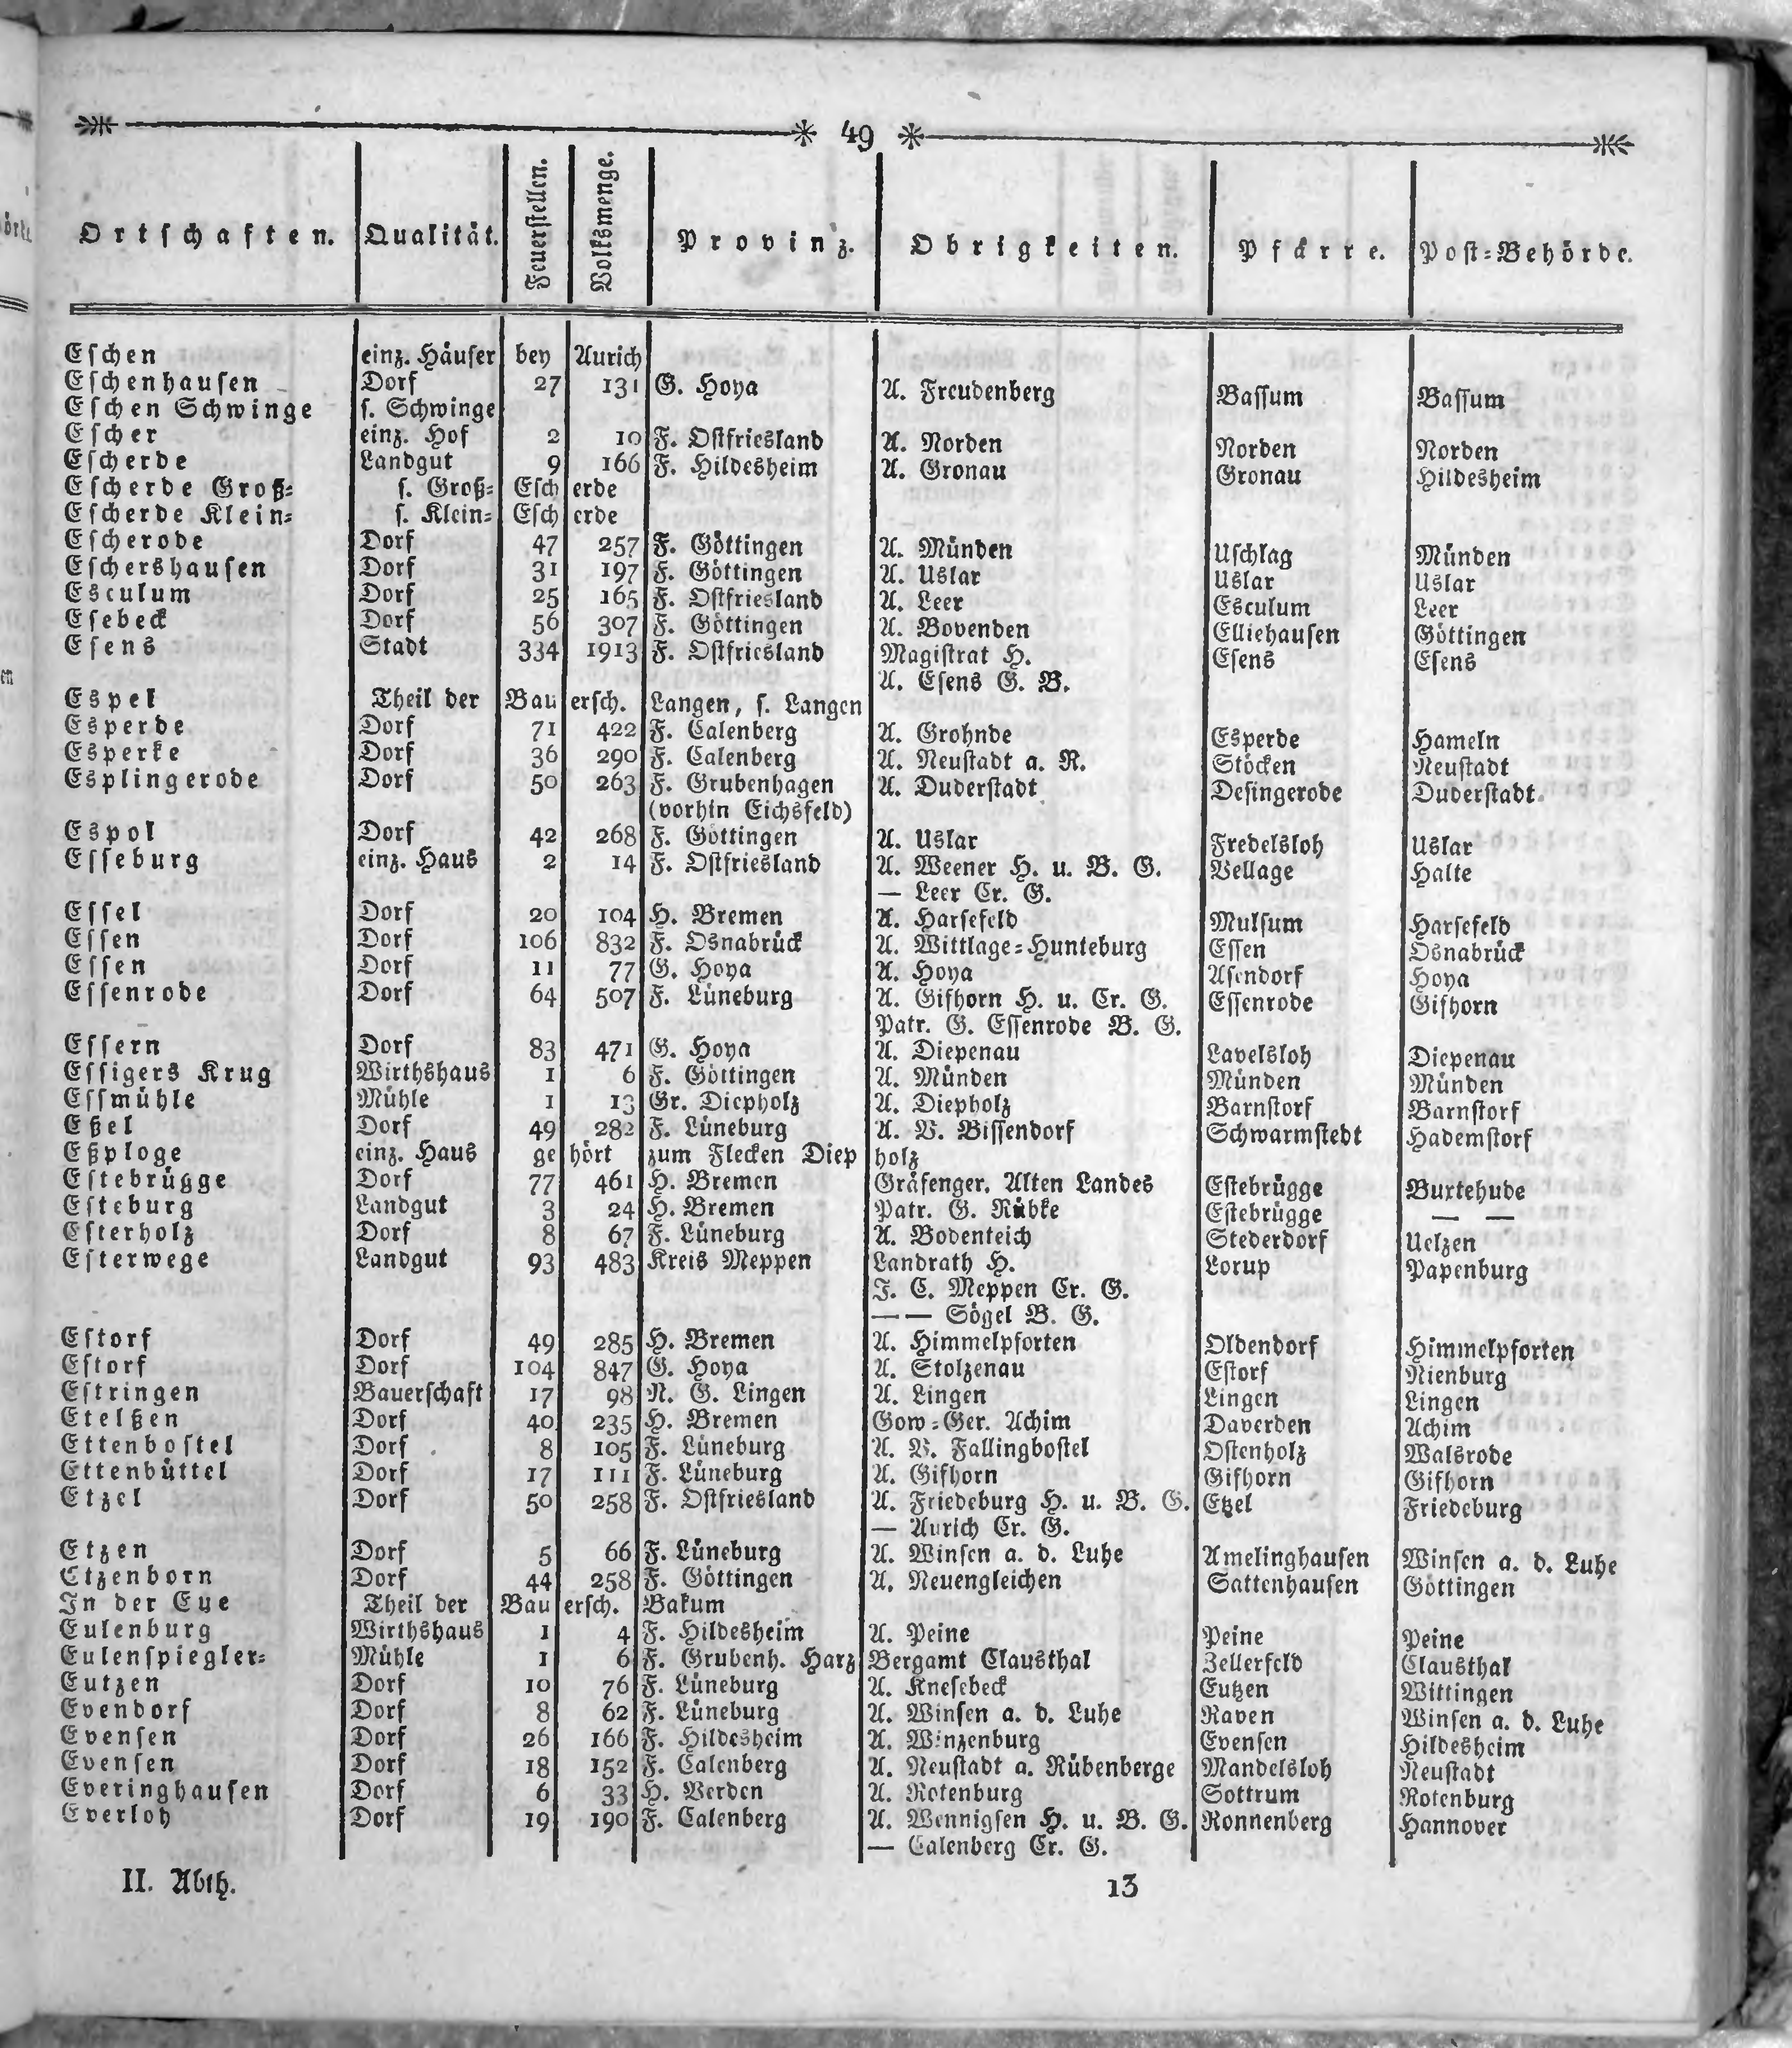 49
Ortschaften. Qualität. Feuerstellen. Volksmenge. Provinz. Obrigkeiten. Pfarre. Post-Behörde.
Eschen einz. Häuser bey Aurich
Eschenhausen Dorf 27 131 G. Hoya A. Freudenberg Bassum Bassum
Eschen Schwinge s. Schwinge
Escher einz. Hof 2 10 F. Ostfriesland A. Norden Norden Norden
Escherde Landgut 9 166 F. Hildesheim A. Gronau Gronau Hildesheim
Escherde Groß- s. Groß- Escherde
Escherde Klein- s. Klein- Escherde
Escherode Dorf 47 257 F. Göttingen A. Münden Uschlag Münden
Eschershausen Dorf 31 197 F. Göttingen A. Uslar Uslar Uslar
Esculum Dorf 25 165 F. Ostfriesland A. Leer Esculum Leer
Esebeck Dorf 56 307 F. Göttingen A. Bovenden Elliehausen Göttingen
Esens Stadt 334 1913 F. Ostfriesland Magistrat H. Esens Esens
A. Esens G. B.
Espel Theil der Bauersch. Langen, s. Langen
Esperde Dorf 71 422 F. Calenberg A. Grohnde Esperde Hameln
Esperke Dorf 36 290 F. Calenberg A. Neustadt a. R. Stöcken Neustadt
Esplingerode Dorf 50 263 F. Grubenhagen A. Duderstadt Desingerode Duderstadt
(vorhin Eichsfeld)
Espol Dorf 42 268 F. Göttingen A. Uslar Fredelsloh Uslar
Esseburg einz. Haus 2 14 F. Ostfriesland A. Weener H. u. B. G. Vellage Halte
— Leer Cr. G.
Essel Dorf 20 104 H. Bremen A. Harsefeld Mulsum Harsefeld
Essen Dorf 106 832 F. Osnabrück A. Wittlage-Hunteburg Essen Osnabrück
Essen Dorf 11 77 G. Hoya A. Hoya Asendorf Hoya
Essenrode Dorf 64 507 F. Lüneburg A. Gifhorn H. u. Cr. G. Essenrode Gifhorn
Patr. G. Essenrode B. G.
Essern Dorf 83 471 G. Hoya A. Diepenau Lavelsloh Diepenau
Essigers Krug Wirthshaus 1 6 F. Göttingen A. Münden Münden Münden
Essmühle Mühle 1 13 Gr. Diepholz A. Diepholz Barnstorf Barnstorf
Eßel Dorf 49 282 F. Lüneburg A. V. Bissendorf Schwarmstedt Hademstorf
Eßploge einz. Haus gehört zum Flecken Diepholz
Estebrügge Dorf 77 461 H. Bremen Gräfenger. Alten Landes Estebrügge Buxtehude
Esteburg Landgut 3 24 H. Bremen Patr. G. Rübke Estebrügge — —
Esterholz Dorf 8 67 F. Lüneburg A. Bodenteich Stederdorf Uelzen
Esterwege Landgut 93 483 Kreis Meppen Landrath H. Lorup Papenburg
J. C. Meppen Cr. G.
— — Sögel B. G.
Estorf Dorf 49 285 H. Bremen A. Himmelpforten Oldendorf Himmelpforten
Estorf Dorf 104 847 G. Hoya A. Stolzenau Estorf Nienburg
Estringen Bauerschaft 17 98 N. G. Lingen A. Lingen Lingen Lingen
Etelßen Dorf 40 235 H. Bremen Gow-Ger. Achim Daverden Achim
Ettenbostel Dorf 8 105 F. Lüneburg A. V. Fallingbostel Ostenholz Walsrode
Ettenbüttel Dorf 17 111 F. Lüneburg A. Gifhorn Gifhorn Gifhorn
Etzel Dorf 50 258 F. Ostfriesland A. Friedeburg H. u. B. G. Etzel Friedeburg
— Aurich Cr. G.
Etzen Dorf 5 66 F. Lüneburg A. Winsen a. d. Luhe Amelinghausen Winsen a. d. Luhe
Etzenborn Dorf 44 258 F. Göttingen A. Neuengleichen Sattenhausen Göttingen
In der Eye Theil der Bauersch. Bakum
Eulenburg Wirthshaus 1 4 F. Hildesheim A. Peine Peine Peine
Eulenspiegler- Mühle 1 6 F. Grubenh. Harz Bergamt Clausthal Zellerfeld Clausthal
Eutzen Dorf 10 76 F. Lüneburg A. Knesebeck Eutzen Wittingen
Evendorf Dorf 8 62 F. Lüneburg A. Winsen a. d. Luhe Raven Winsen a. d. Luhe
Evensen Dorf 26 166 F. Hildesheim A. Winzenburg Evensen Hildesheim
Evensen Dorf 18 152 F. Calenberg A. Neustadt a. Rübenberge Mandelsloh Neustadt
Everinghausen Dorf 6 33 H. Verden A. Rotenburg Sottrum Rotenburg
Everloh Dorf 19 190 F. Calenberg A. Wennigsen H. u. B. G. Ronnenberg Hannover
— Calenberg Cr. G.
II. Abth. 13